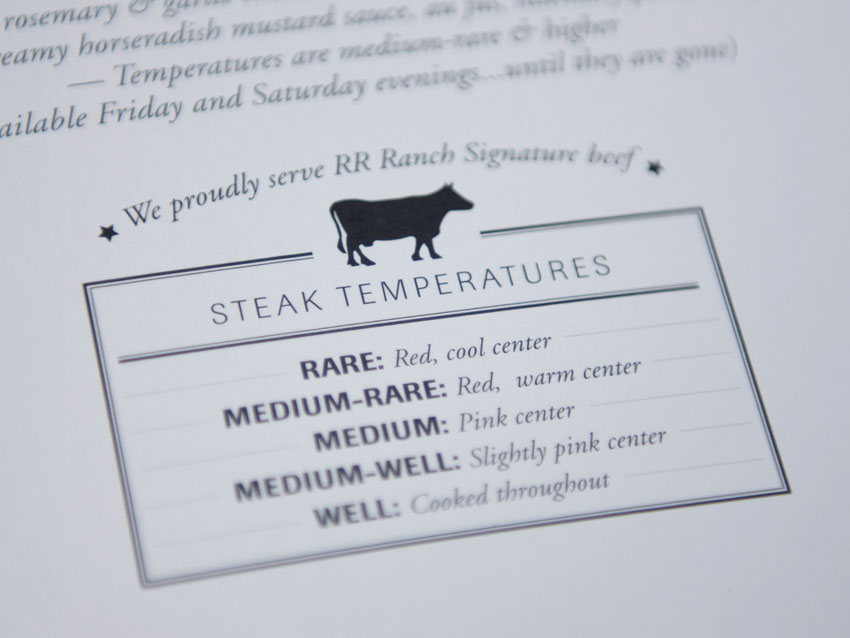 rosemary & garlic
eamy horseradish mustard sauce, au jus,
— Temperatures are medium-rare & higher
ailable Friday and Saturday evenings...until they are gone)
★ We proudly serve RR Ranch Signature beef ★
STEAK TEMPERATURES
RARE: Red, cool center
MEDIUM-RARE: Red, warm center
MEDIUM: Pink center
MEDIUM-WELL: Slightly pink center
WELL: Cooked throughout